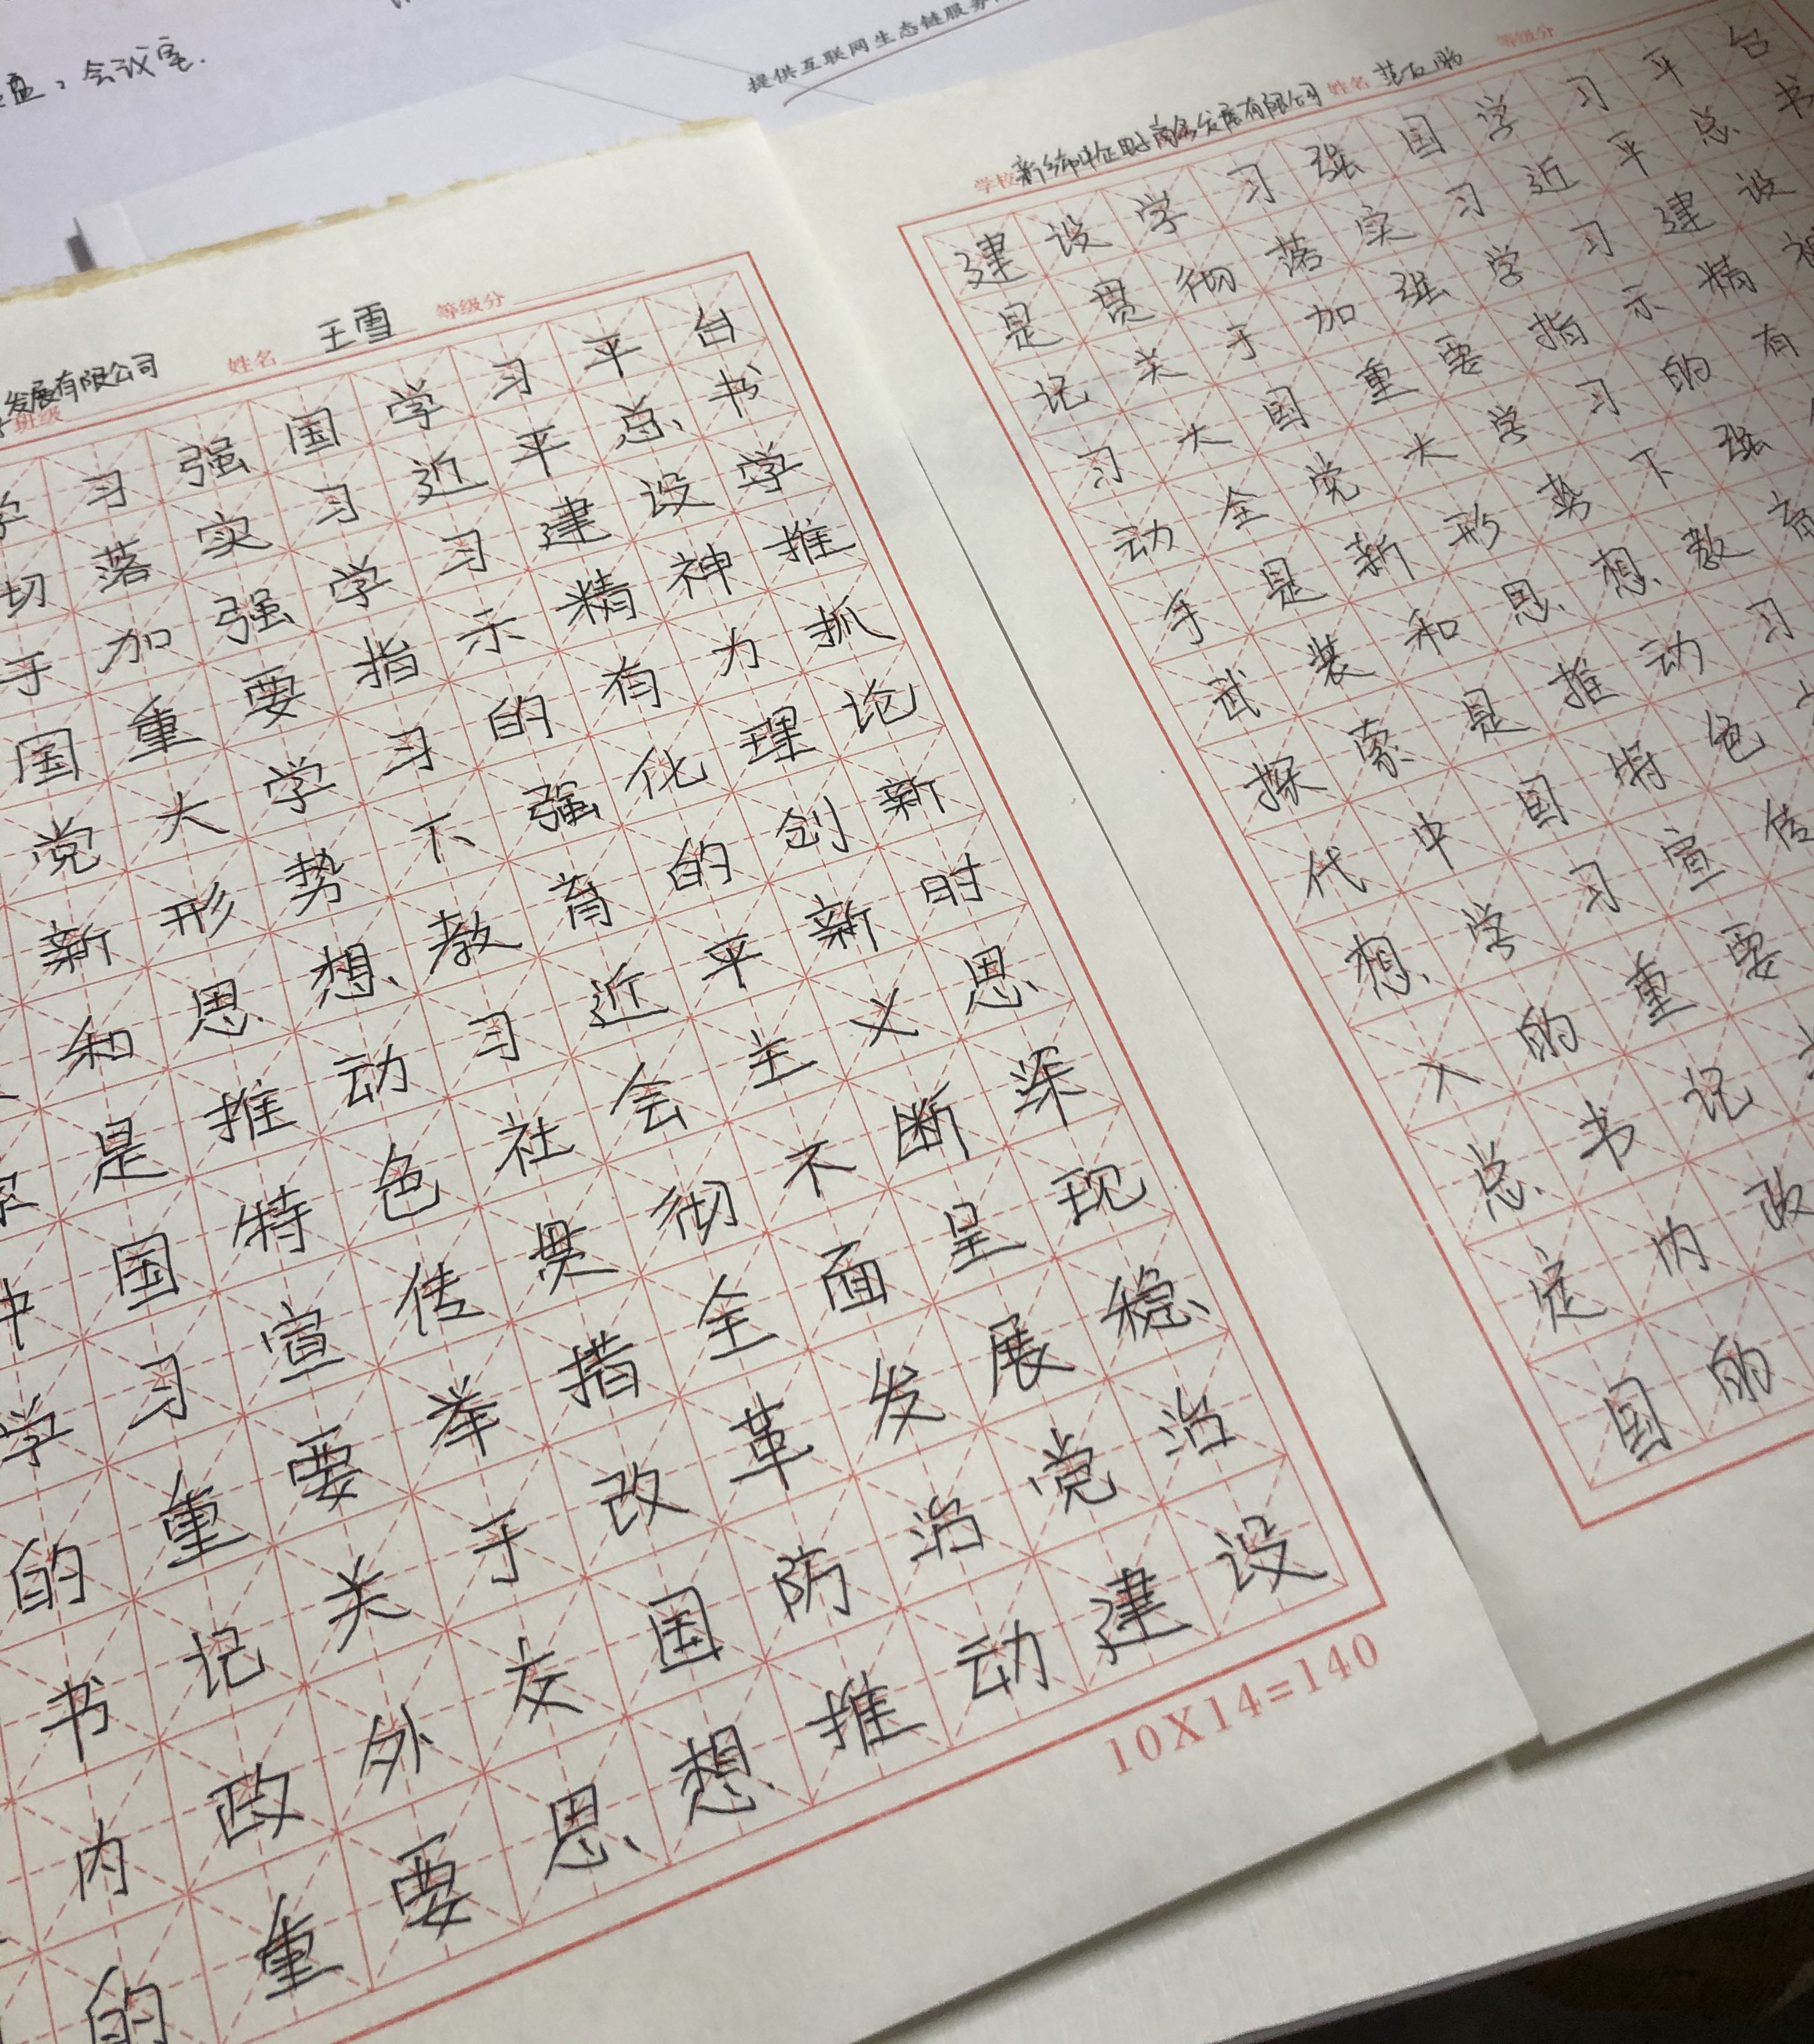 会议室.
提供互联网生态链服务
发展有限公司
班级
姓名 王雪
等级分
学习强国学习平台
切落实习近平总书
于加强学习建设学
国重要指示精神推
党大学习的有力抓
新形势下强化理论
和思想教育的创新
是推动习近平新时
中国特色社会主义思
学习宣传贯彻不断深
的重要举措全面呈现
书记关于改革发展稳
内政外交国防治党治
的重要思想推动建设
10X14=140
学校
商务发展有限公司
姓名
等级分
建设学习强国学习平台
是贯彻落实习近平总书
记关于加强学习建设
习大国重要指示精神
动全党大学习的有
手是新形势下强
武装和思想教育
探索是推动习
代中国特色
想学习宣传
入的重要
总书记
定内政
国的